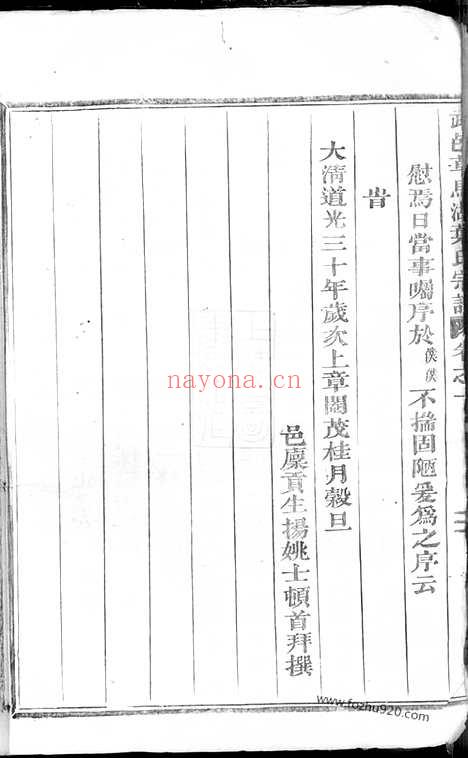 慰焉日當事囑序於僕僕不揣固陋爰為之序云
旹
大清道光三十年歲次上章閹茂桂月穀旦
邑廩貢生揚姚士頓首拜撰
nayona.cn
www.fozhu920.com